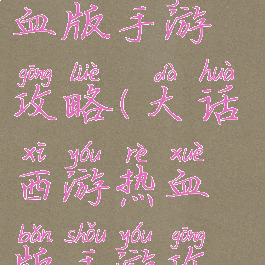 血版手游
gōng lüè dà huà
攻略(大话
xī yóu rè xuè
西游热血
bǎn shǒu yóu gōng
版手游攻